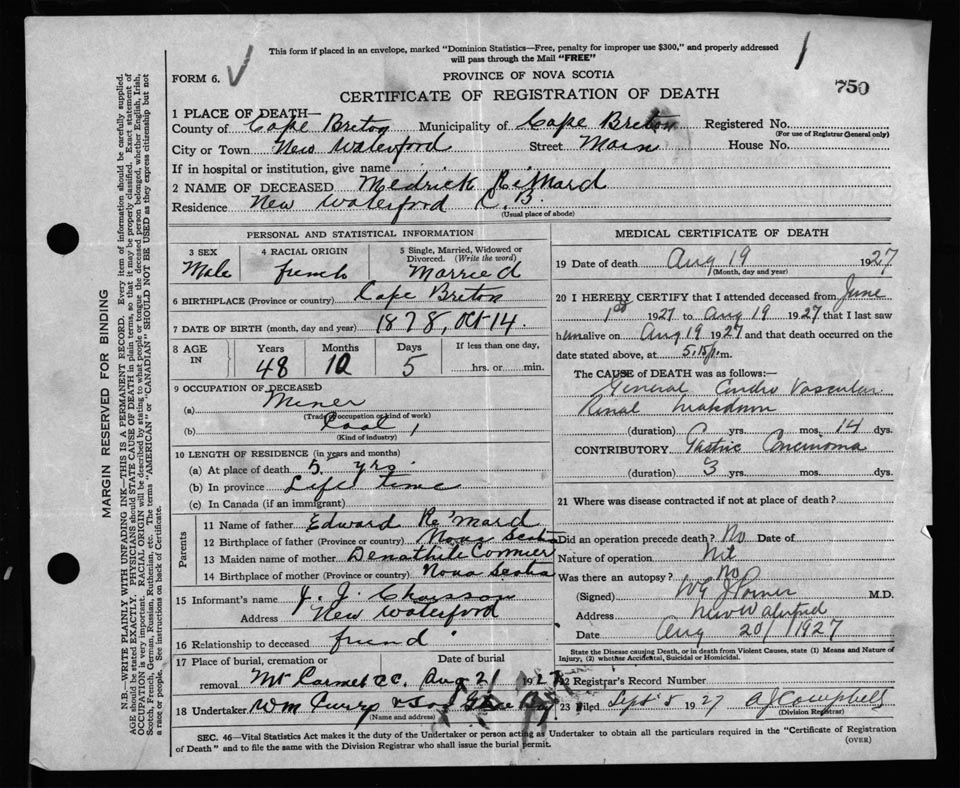 This form if placed in an envelope, marked "Dominion Statistics—Free, penalty for improper use $300," and properly addressed
will pass through the Mail "FREE"
FORM 6.
PROVINCE OF NOVA SCOTIA
750
CERTIFICATE OF REGISTRATION OF DEATH
1 PLACE OF DEATH—
County of Cape Breton Municipality of Cape Breton Registered No.
(For use of Registrar General only)
City or Town New Waterford Street Main House No.
If in hospital or institution, give name
2 NAME OF DECEASED Medrick
Residence New Waterford C.B.
(Usual place of abode)
PERSONAL AND STATISTICAL INFORMATION
3 SEX Male
4 RACIAL ORIGIN french
5 Single, Married, Widowed or Divorced. (Write the word) Married
6 BIRTHPLACE (Province or country) Cape Breton
7 DATE OF BIRTH (month, day and year) 1878, Oct 14.
8 AGE IN Years 48 Months 10 Days 5 If less than one day, hrs. or min.
9 OCCUPATION OF DECEASED
(a) Miner
(Trade occupation or kind of work)
(b) Coal
(Kind of industry)
10 LENGTH OF RESIDENCE (in years and months)
(a) At place of death 5 yrs.
(b) In province Life Time
(c) In Canada (if an immigrant)
Parents
11 Name of father Edward Re'mard
12 Birthplace of father (Province or country) Nova Scotia
13 Maiden name of mother Cormier
14 Birthplace of mother (Province or country) Nova Scotia
15 Informant's name J. J. Chaisson
Address New Waterford
16 Relationship to deceased friend
17 Place of burial, cremation or removal Mt Carmel Date of burial Aug 21 1927
18 Undertaker Wm & Son Glace Bay
(Name and address)
MEDICAL CERTIFICATE OF DEATH
19 Date of death Aug 19 1927
(Month, day and year)
20 I HEREBY CERTIFY that I attended deceased from June
1st 1927 to Aug 19 1927 that I last saw
him alive on Aug 19 1927 and that death occurred on the
date stated above, at 5.15 p.m.
The CAUSE OF DEATH was as follows:—
General Cardio Vascular
Renal breakdown
(duration) yrs. mos. 14 dys.
CONTRIBUTORY Gastric Carcinoma
(duration) 3 yrs. mos. dys.
21 Where was disease contracted if not at place of death?
Did an operation precede death? No Date of
Nature of operation
Was there an autopsy? No
(Signed) M.D.
Address New Waterford
Date Aug 20/1927
State the Disease causing Death, or in death from Violent Causes, state (1) Means and Nature of
Injury, (2) whether Accidental, Suicidal or Homicidal.
22 Registrar's Record Number
23 Filed Sept 8 1927 A J Campbell
(Division Registrar)
SEC. 46—Vital Statistics Act makes it the duty of the Undertaker or person acting as Undertaker to obtain all the particulars required in the "Certificate of Registration
of Death" and to file the same with the Division Registrar who shall issue the burial permit.
(OVER)
MARGIN RESERVED FOR BINDING
N.B.—WRITE PLAINLY, WITH UNFADING INK—THIS IS A PERMANENT RECORD. Every item of information should be carefully supplied.
AGE should be stated EXACTLY. PHYSICIANS should STATE CAUSE OF DEATH in plain terms, so that it may be properly classified. Exact statement of
OCCUPATION is very important. RACIAL ORIGIN will be described by stating to what people or tongue the deceased person belonged, whether English, Irish,
Scotch, French, German, Russian, Ruthenian, etc. The terms "AMERICAN" or "CANADIAN" SHOULD NOT BE USED as they express citizenship but not
a race or people. See instructions on back of Certificate.